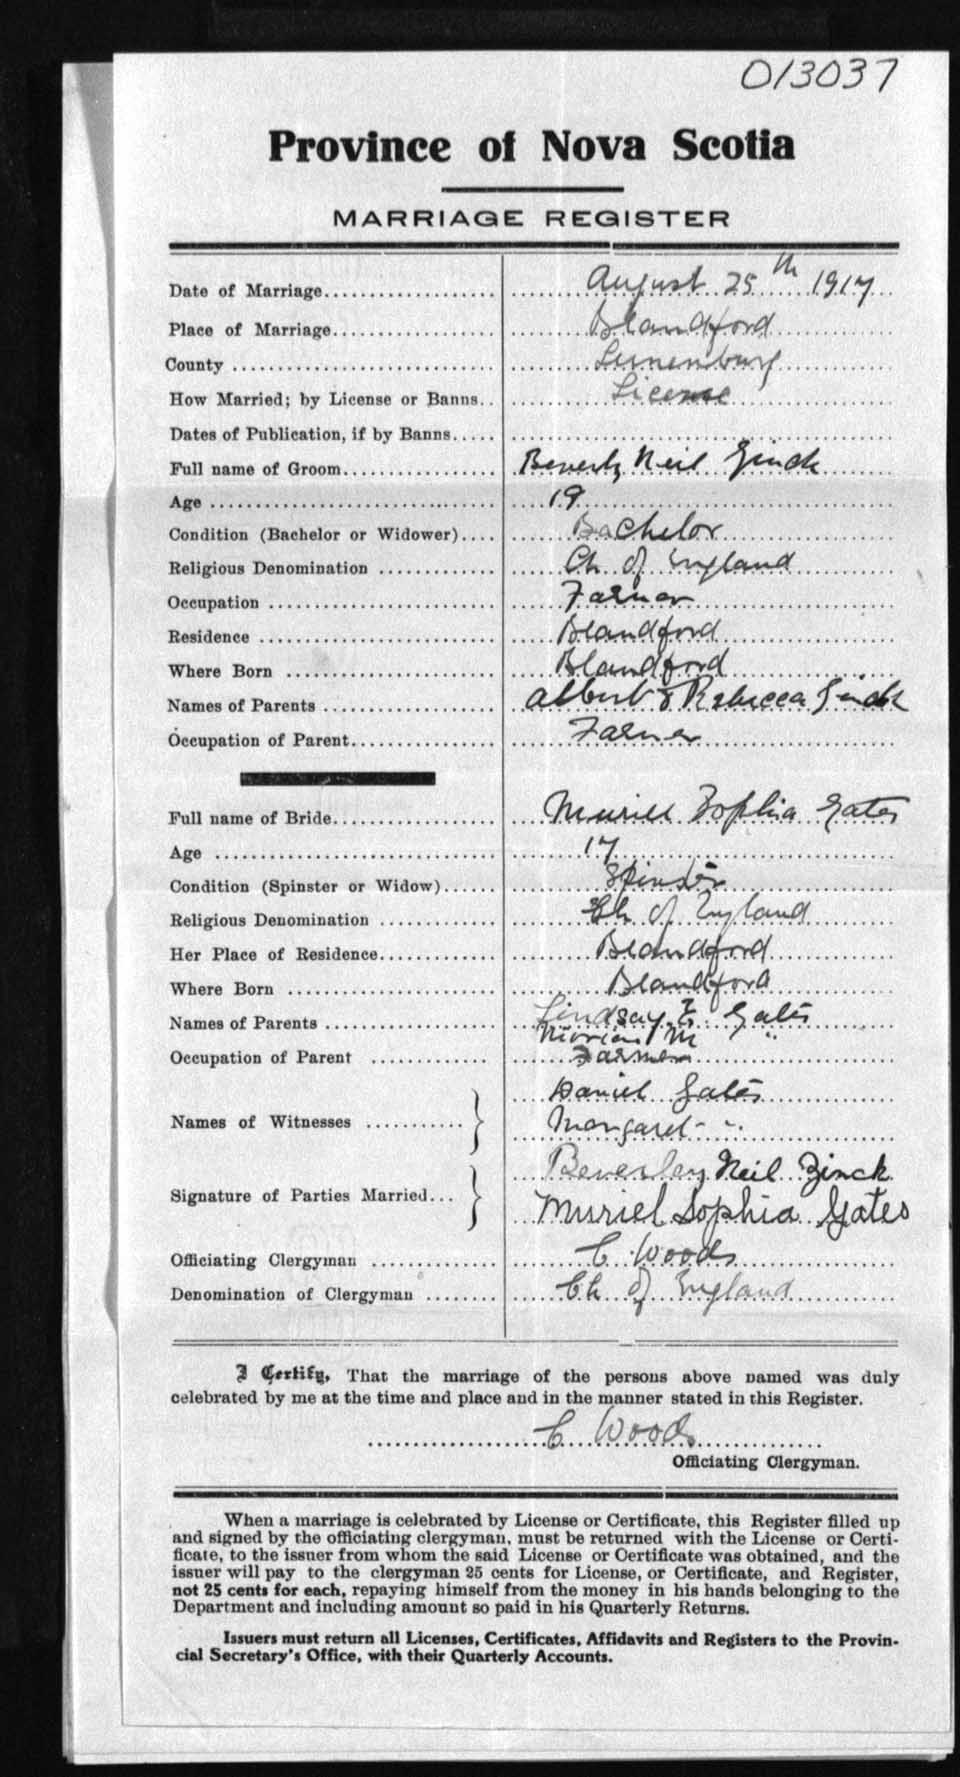 013037
Province of Nova Scotia
MARRIAGE REGISTER
Date of Marriage August 25th 1917
Place of Marriage Blandford
County Lunenburg
How Married; by License or Banns License
Dates of Publication, if by Banns
Full name of Groom Beverly Neil Zinck
Age 19
Condition (Bachelor or Widower) Bachelor
Religious Denomination Ch of England
Occupation Farmer
Residence Blandford
Where Born Blandford
Names of Parents Albert & Rebecca Zinck
Occupation of Parent Farmer
Full name of Bride Muriel Sophia Gates
Age 17
Condition (Spinster or Widow) Spinster
Religious Denomination Ch of England
Her Place of Residence Blandford
Where Born Blandford
Names of Parents Lindsay E Gates
M "
Occupation of Parent Farmer
Names of Witnesses Daniel Gates
Margaret "
Signature of Parties Married Beverley Neil Zinck
Muriel Sophia Gates
Officiating Clergyman C Woods
Denomination of Clergyman Ch of England
I Certify, That the marriage of the persons above named was duly
celebrated by me at the time and place and in the manner stated in this Register.
C Woods
Officiating Clergyman.
When a marriage is celebrated by License or Certificate, this Register filled up
and signed by the officiating clergyman, must be returned with the License or Certi-
ficate, to the issuer from whom the said License or Certificate was obtained, and the
issuer will pay to the clergyman 25 cents for License, or Certificate, and Register,
not 25 cents for each, repaying himself from the money in his hands belonging to the
Department and including amount so paid in his Quarterly Returns.
Issuers must return all Licenses, Certificates, Affidavits and Registers to the Provin-
cial Secretary's Office, with their Quarterly Accounts.